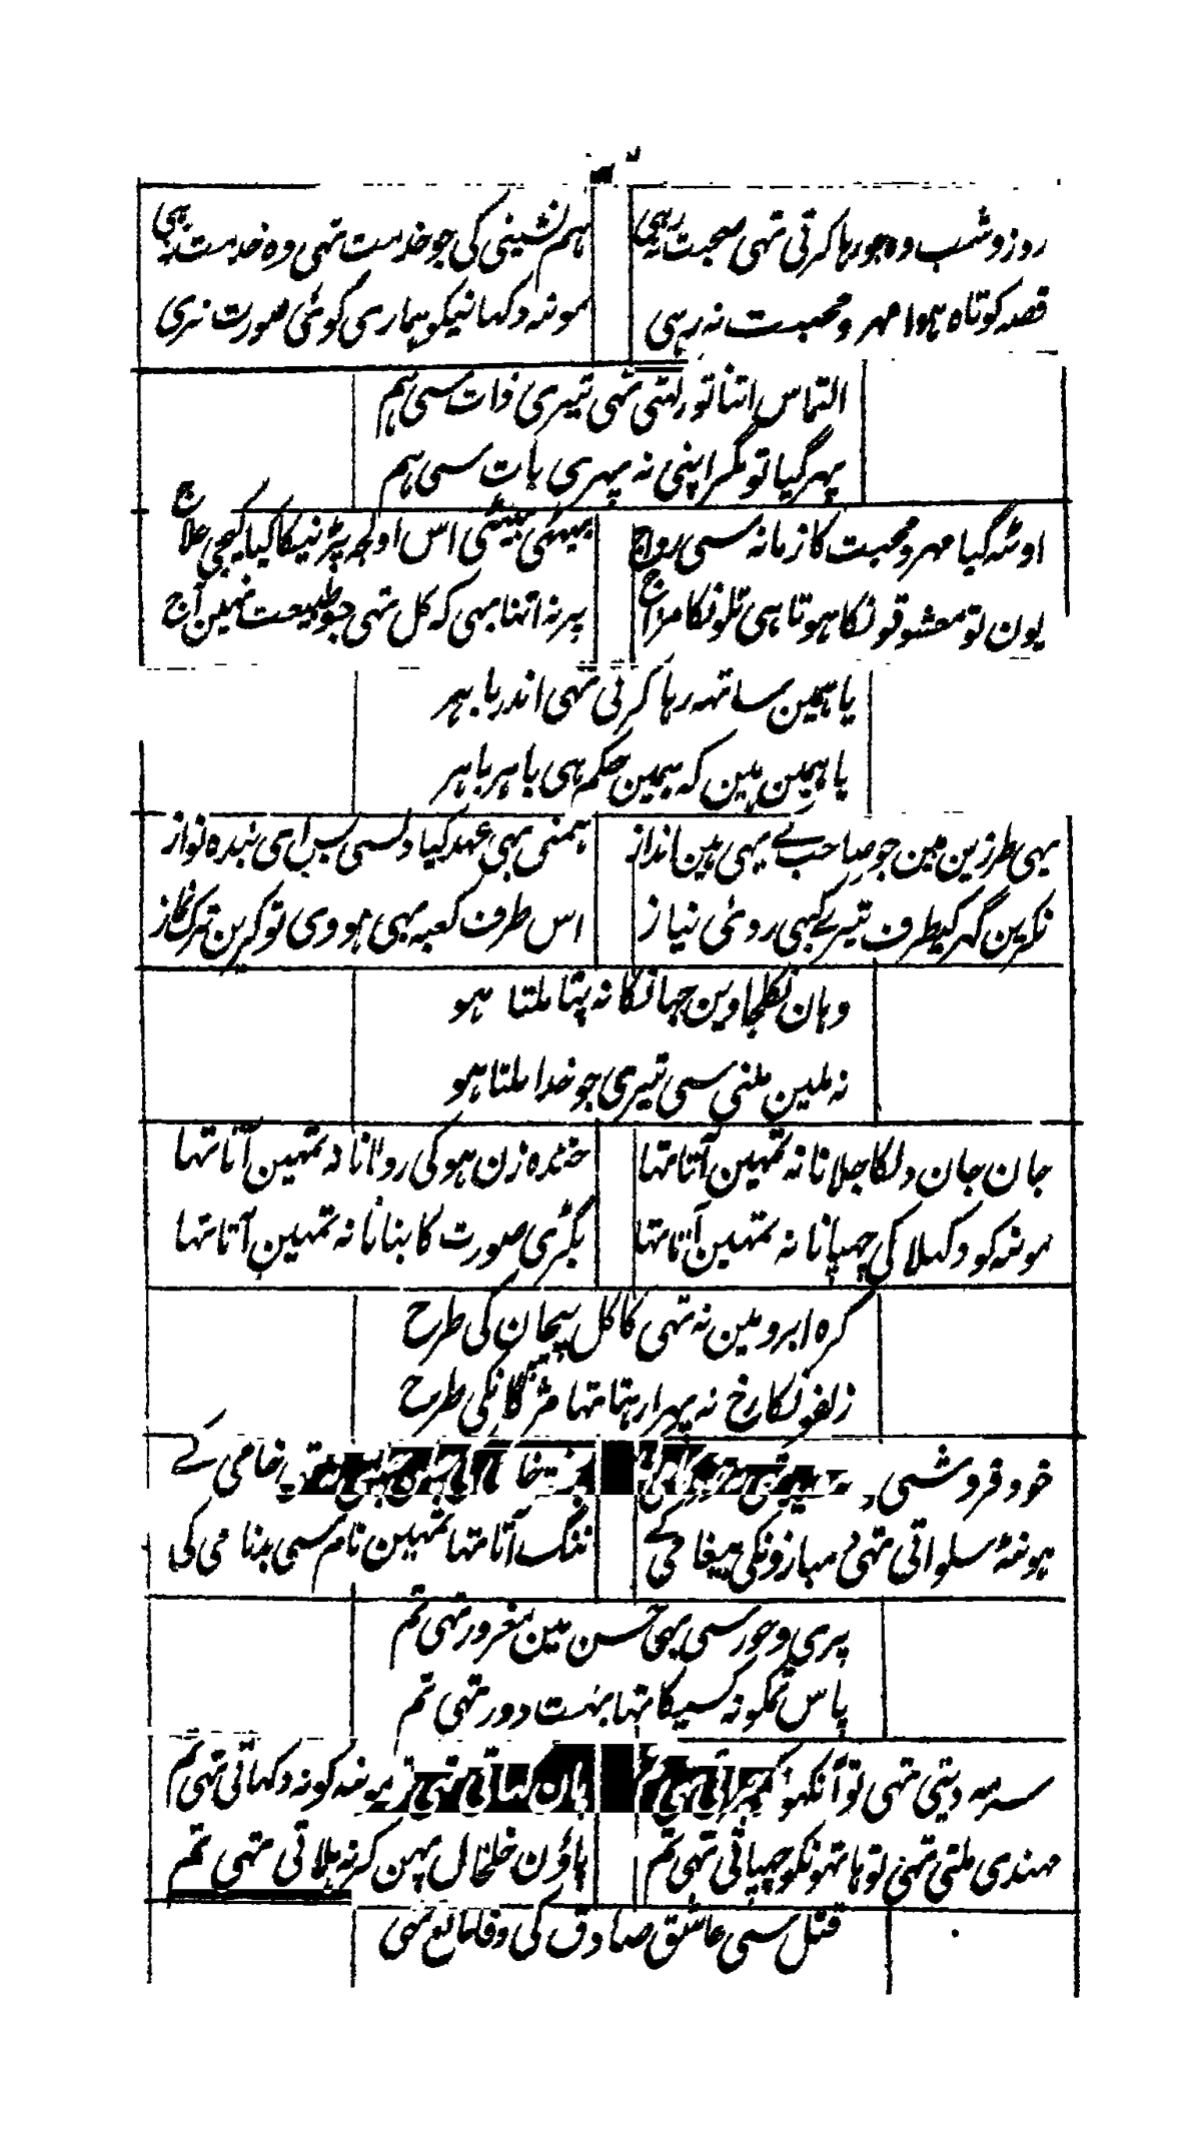 روز و شب وہ جو رہا کرتی تہی صحبت نہ رہی
ہم نشینی کی جو خدمت تہی وہ خدمت نہ رہی
قصہ کوتاہ ہوا مہر و محبت نہ رہی
مونہ دکہانیکو ہماری کوئی صورت نرہی
التماس اتنا تو رکہتی تہی تیری ذات سی ہم
پہر گیا تو مگر اپنی نہ پہری بات سی ہم
اوٹہ گیا مہر و محبت کا زمانہ سی رواج
بیٹہی اس اولجہ پڑنیکا کیا کیجی علاج
یون تو معشوقونکا ہوتا ہی تلونکا مزاج
پر نہ اتنا بہی کہ کل تہی جو طبیعت نہین آج
یا ہمین ساتہہ رہا کرتی تہی اندر باہر
یا ہمین ہین کہ ہمین حکم ہی باہر باہر
یہی طرزین ہین جو صاحب کے یہی ہین انداز
ہمنی بہی عہد کیا دلسی بس ای بندہ نواز
نکرین گہر کیطرف تیرے کبہی روئی نیاز
اس طرف کعبہ بہی ہووی تو کرین ترک نماز
وہان نکلجاوین جہانکا نہ پتا ملتا ہو
نہ ملین ملنی سی تیری جو خدا ملتا ہو
جان جان دلکا جلانا نہ تمہین آتا تہا
خندہ زن ہو کی رولانا نہ تمہین آتا تہا
مونہ کو دکہلا کی چہپانا نہ تمہین آتا تہا
بگڑی صورت کا بنانا نہ تمہین آتا تہا
گرہ ابرو مین نہ تہی کاکل پیچان کی طرح
زلفونکا رخ نہ پہرا رہتا تہا مژگانکی طرح
خود فروشی
خامی کے
مونہہ سلواتی تہی دمبازونکی پیغامی کے
ننگ آتا تہا تمہین نام سی بدنامی کی
پری و حور سی بہی حسن مین مغرور تہی تم
پاس تمکو نہ کسیکا تہا بہت دور تہی تم
سرمہ دیتی تہی تو آنکہونکو چراتی تہی تم
پان کہاتی تہی تو مونہہ کو نہ دکہاتی تہی تم
مہندی ملتی تہی تو ہاتہونکو چہپاتی تہی تم
پاؤن خلخال پہن کر نہ ہلاتی تہی تم
قتل سی عاشق صادق کی وفا مانع تہی